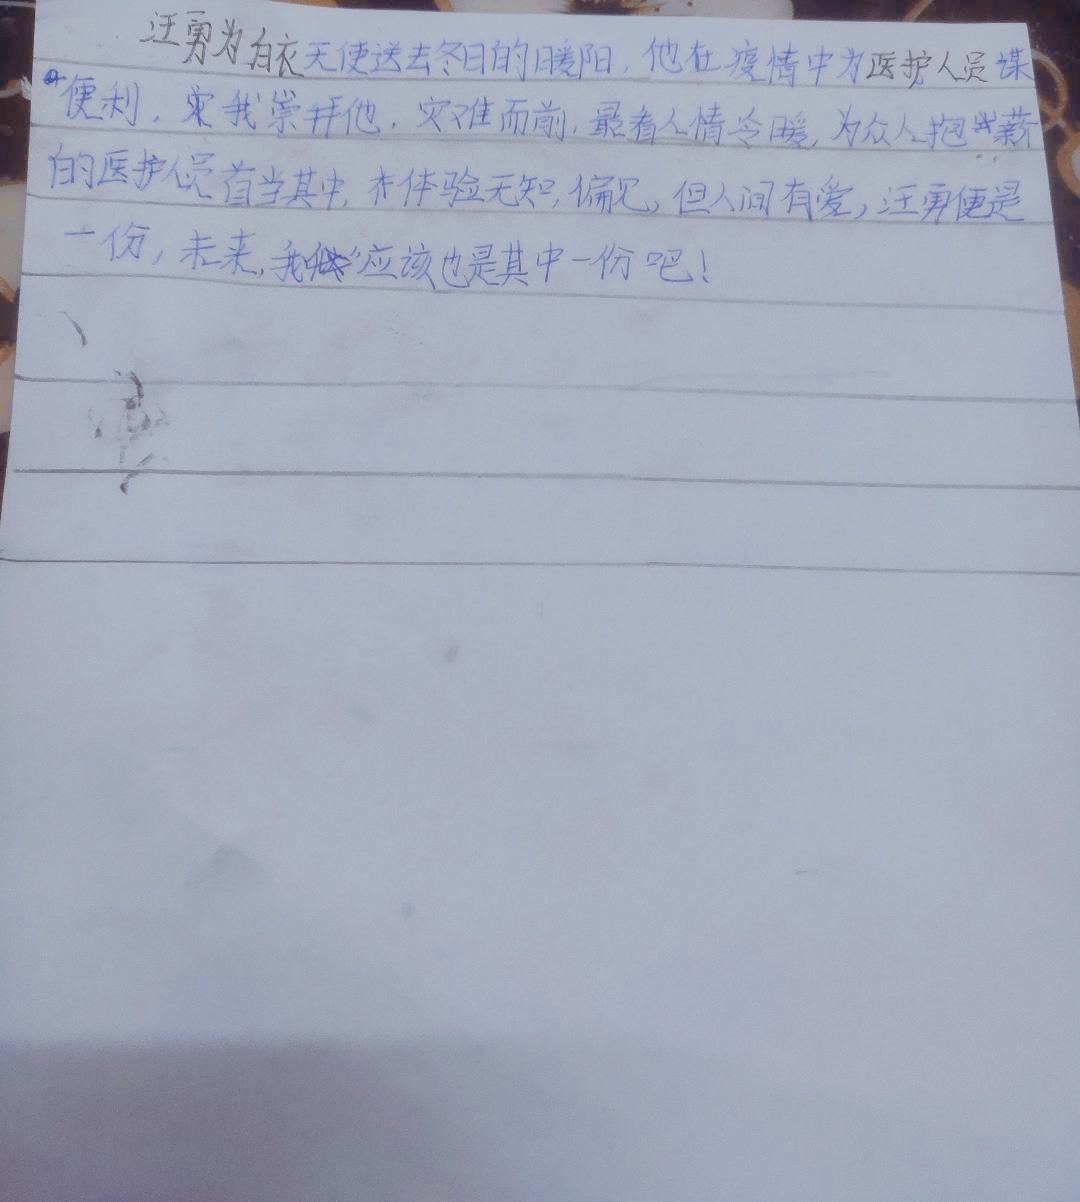 汪勇为白衣天使送去冬日的暖阳，他在疫情中为医护人员谋
便利，我崇拜他，灾难面前，最看人情冷暖，为众人抱薪
的医护人员首当其中，体验无知，偏见，但人间有爱，汪勇便是
一份，未来，我应该也是其中一份吧！